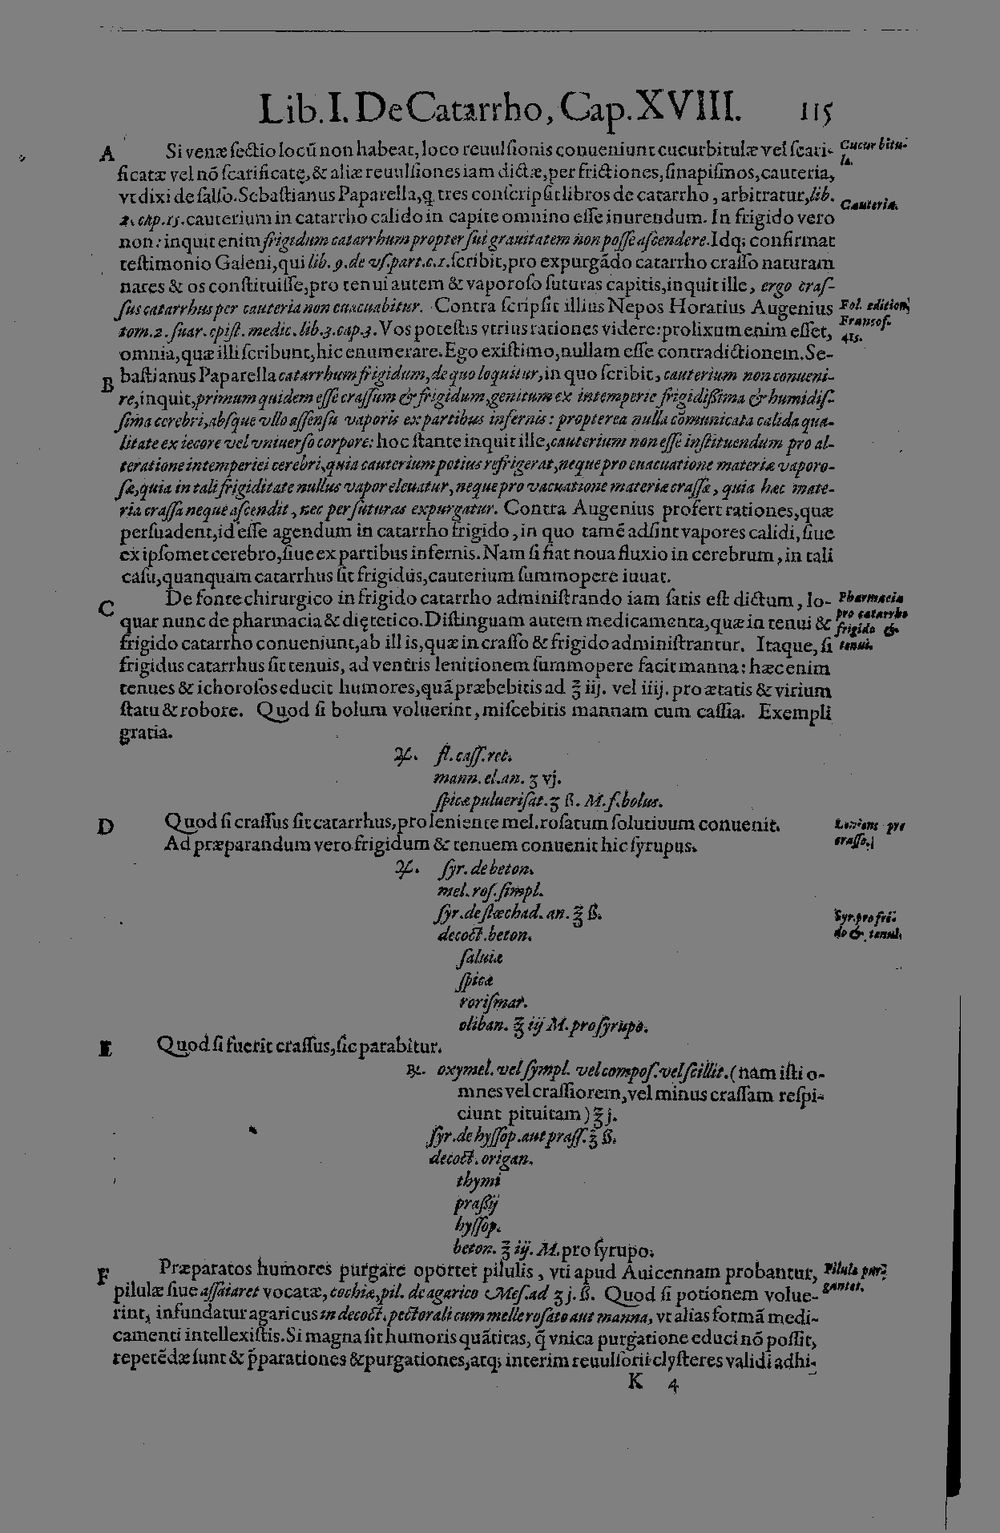 Lib. I. De Catarrho, Cap. XVIII. 115
A Si venæ ſectio locũ non habeat, loco reuulſionis conueniunt cucurbitulæ vel ſcari- Cucurbitu-
ficatæ vel nõ ſcarificatę, & aliæ reuulſiones iam dictæ, per frictiones, ſinapiſmos, cauteria, la.
vt dixi de ſalſo. Sebaſtianus Paparella, q tres conſcripſit libros de catarrho, arbitratur, lib.
2. cap. 15. cauterium in catarrho calido in capite omnino eſſe inurendum. In frigido vero Cauteria.
non: inquit enim frigidum catarrhum propter ſui grauitatem non poſſe aſcendere. Idq; confirmat
teſtimonio Galeni, qui lib. 9. de vſ. part. c. 1. ſcribit, pro expurgãdo catarrho craſſo naturam
nares & os conſtituiſſe, pro tenui autem & vaporoſo ſuturas capitis, inquit ille, ergo craſ-
ſus catarrhus per cauteria non euacuabitur. Contra ſcripſit illius Nepos Horatius Augenius Fol. edition.
tom. 2. ſuar. epiſt. medic. lib. 3. cap. 3. Vos poteſtis vtrius rationes videre: prolixum enim eſſet, Francof.
omnia, quæ illi ſcribunt, hic enumerare. Ego exiſtimo, nullam eſſe contradictionem. Se- 415.
B baſtianus Paparella catarrhum frigidum, de quo loquitur, in quo ſcribit, cauterium non conueni-
re, inquit, primum quidem eſſe craſſum & frigidum, genitum ex intemperie frigidiſſima & humidiſ-
ſima cerebri, abſque vllo aſſenſu vaporis ex partibus infernis: propterea nulla cõmunicata calida qua-
litate ex iecore vel vniuerſo corpore: hoc ſtante inquit ille, cauterium non eſſe inſtituendum pro al-
teratione intemperiei cerebri, quia cauterium potius refrigerat, neque pro euacuatione materiæ vaporo-
ſæ, quia in tali frigiditate nullus vapor eleuatur, neque pro vacuatione materiæ craſſæ, quia hæc mate-
ria craſſa neque aſcendit, nec per ſuturas expurgatur. Contra Augenius profert rationes, quæ
perſuadent, id eſſe agendum in catarrho frigido, in quo tamẽ adſint vapores calidi, ſiue
ex ipſomet cerebro, ſiue ex partibus infernis. Nam ſi fiat noua fluxio in cerebrum, in tali
caſu, quanquam catarrhus ſit frigidus, cauterium ſummopere iuuat.
C De fonte chirurgico in frigido catarrho adminiſtrando iam ſatis eſt dictum, lo- Pharmacia
quar nunc de pharmacia & diętetico. Diſtinguam autem medicamenta, quæ in tenui & pro catarrho
frigido catarrho conueniunt, ab illis, quæ in craſſo & frigido adminiſtrantur. Itaque, ſi frigido &
frigidus catarrhus ſit tenuis, ad ventris lenitionem ſummopere facit manna: hæc enim tenui.
tenues & ichoroſos educit humores, quã præbebitis ad ℥ iij. vel iiij. pro ætatis & virium
ſtatu & robore. Quod ſi bolum voluerint, miſcebitis mannam cum caſſia. Exempli
gratia.
♃. fl. caſſ. ret.
mann. el. an. ʒ vj.
ſpicæ pulueriſat. ʒ ß. M. f. bolus.
D Quod ſi craſſus ſit catarrhus, pro leniente mel. roſatum ſolutiuum conuenit. Leniens pro
Ad præparandum vero frigidum & tenuem conuenit hic ſyrupus. craſſo.
♃. ſyr. de beton.
mel. roſ. ſimpl.
ſyr. de ſtœchad. an. ℥ ß. Syr. pro fri-
decoct. beton. do & tenui.
ſaluiæ
ſpicæ
roriſmar.
oliban. ℥ iij M. pro ſyrupo.
E Quod ſi fuerit craſſus, ſic parabitur.
℞. oxymel. vel ſympl. vel compoſ. vel ſcillit. (nam iſti o-
mnes vel craſſiorem, vel minus craſſam reſpi-
ciunt pituitam) ℥ j.
ſyr. de hyſſop. aut praſſ. ℥ ß.
decoct. origan.
thymi
praſſij
hyſſop.
beton. ℥ iij. M. pro ſyrupo.
F Præparatos humores purgare oportet pilulis, vti apud Auicennam probantur, Pilulæ pur-
pilulæ ſiue aſſaiaret vocatæ, cochiæ, pil. de agarico Meſ. ad ʒ j. ß. Quod ſi potionem volue- gantes.
rint, infundatur agaricus in decoct. pectorali cum melle roſato aut manna, vt alias formã medi-
camenti intellexiſtis. Si magna ſit humoris quãtitas, q̃ vnica purgatione educi nõ poſſit,
repetẽdæ ſunt & p̃parationes & purgationes, atq; interim reuulſorii clyſteres validi adhi-
K 4